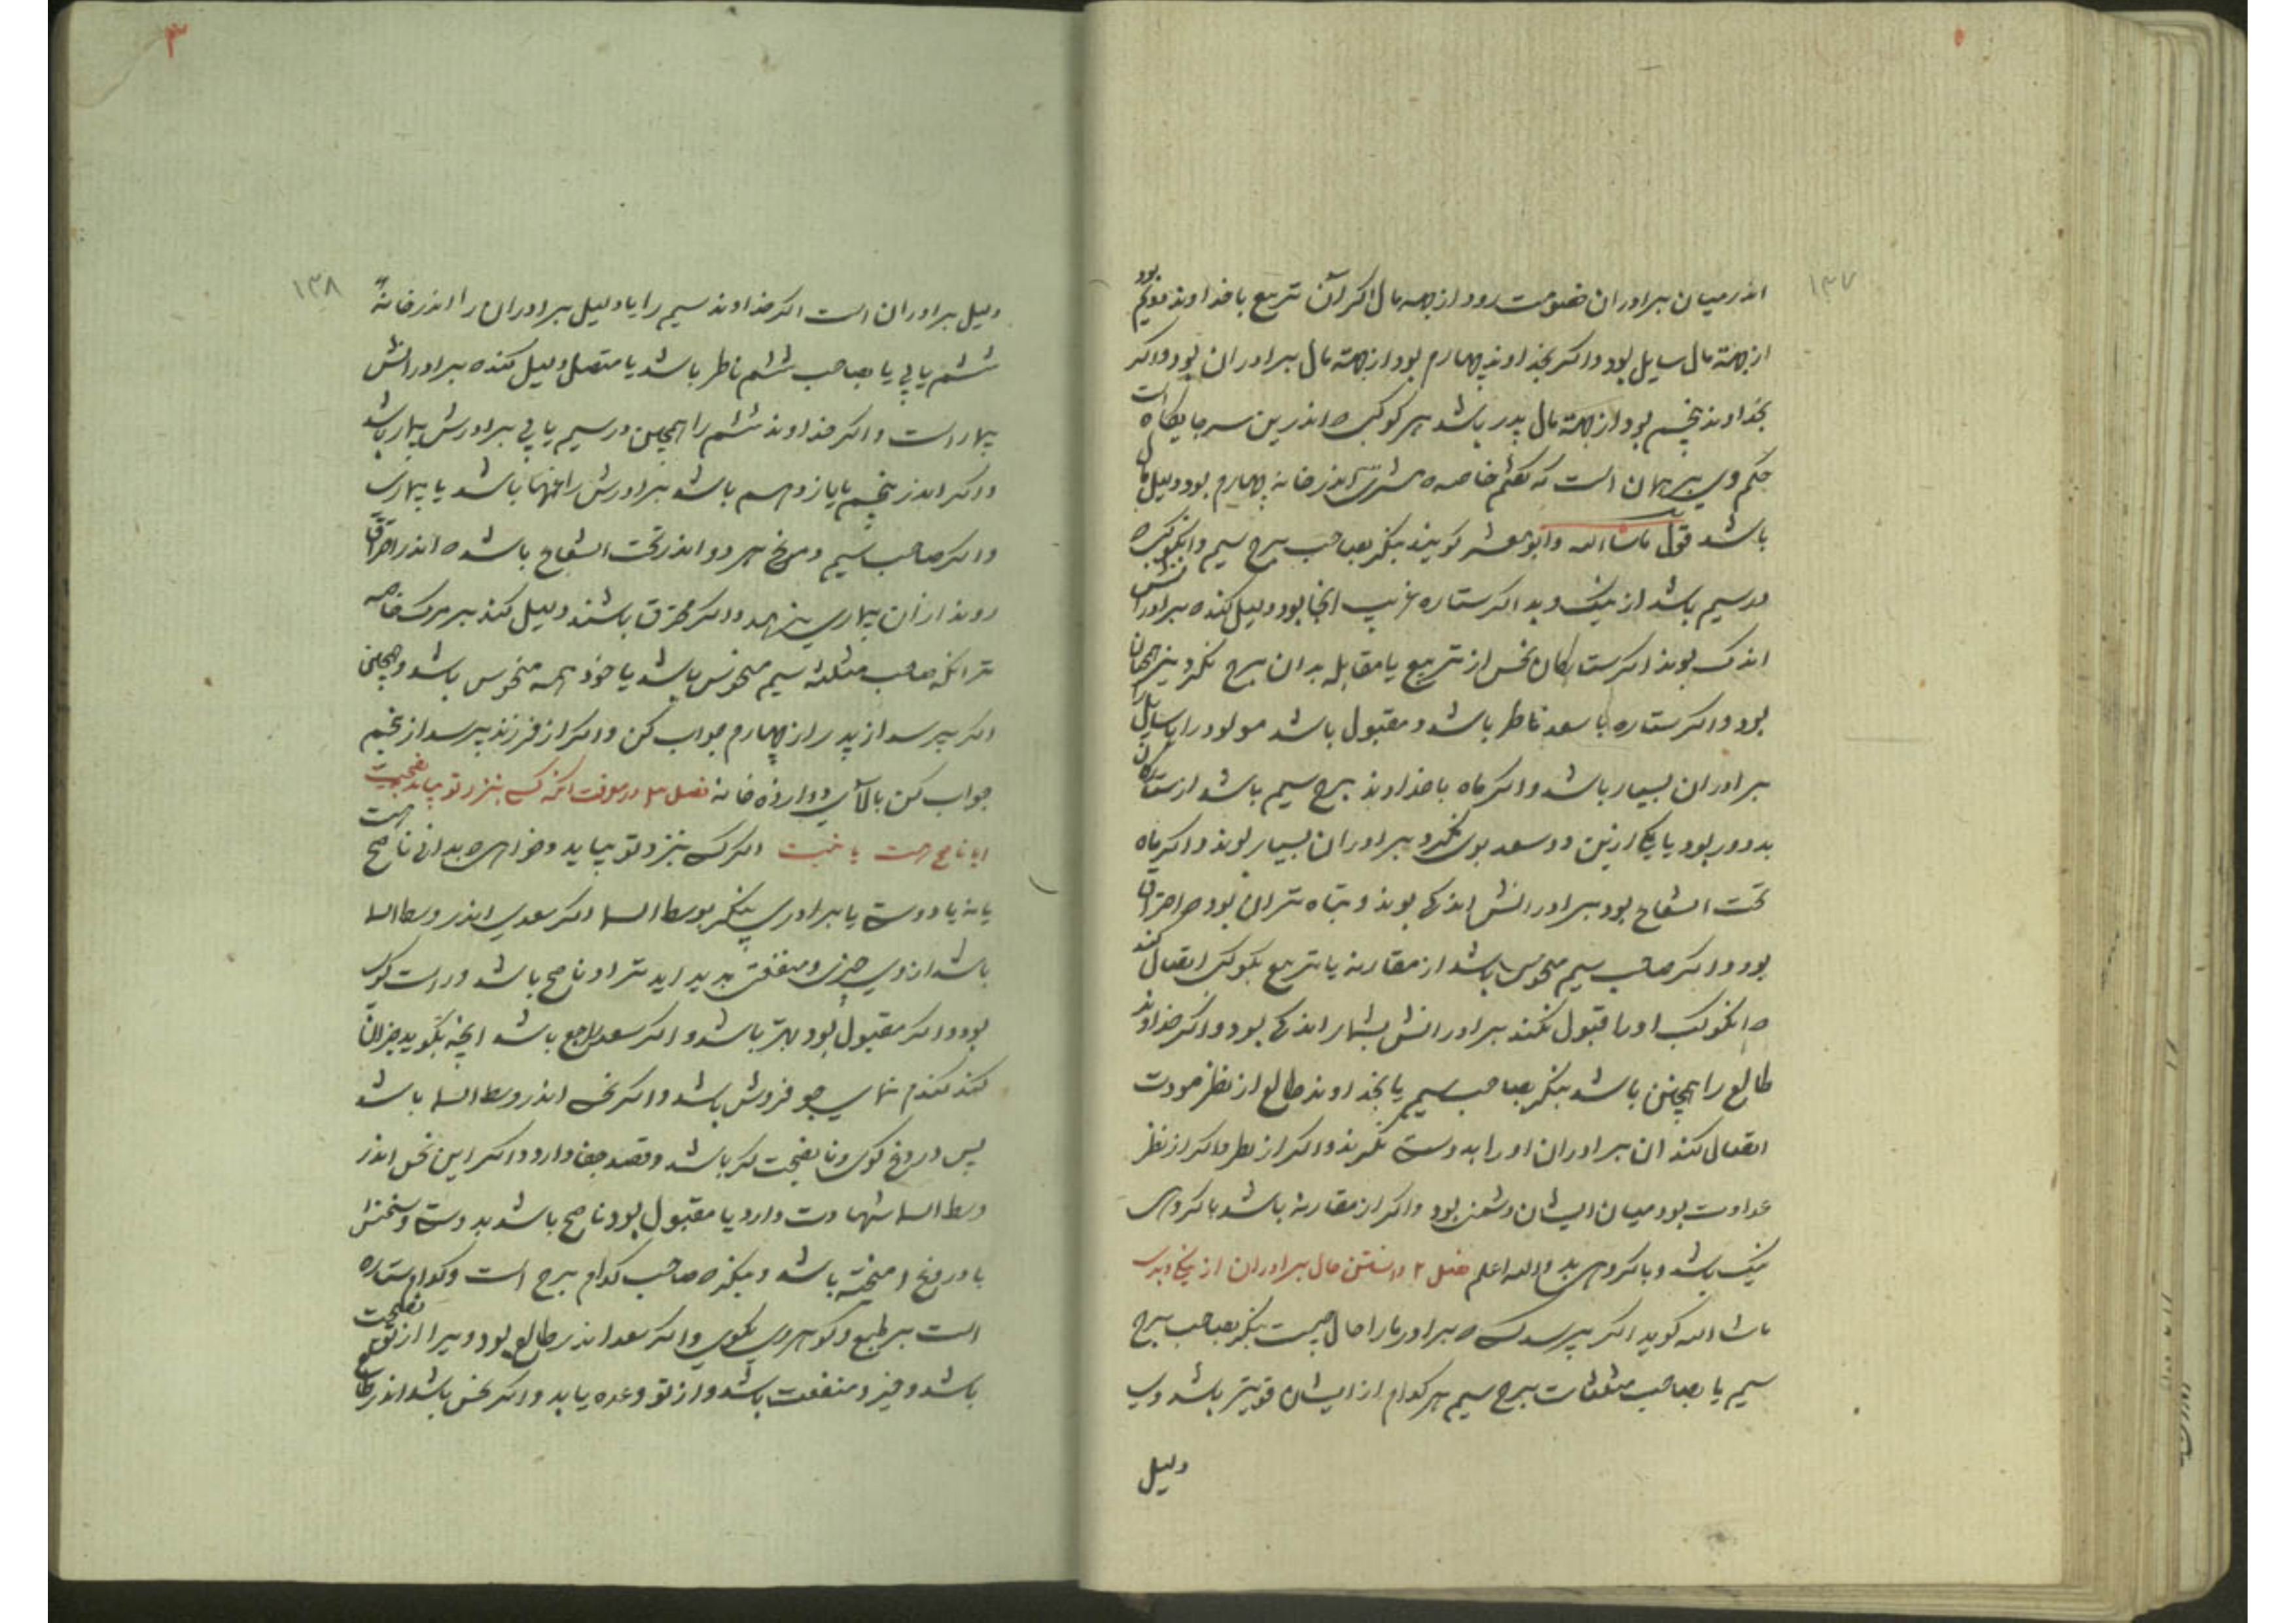 ۱۳۷
اندر میان برادران خصومت رود از جهة مال اکر آن تربیع با خداوند دویم بود
از جهة مال سایل بود و اکر بخداوند چهارم بود از جهة مال برادران بود و اکر
بخداوند پنجم بود از جهة مال پدر باشد هر کوکب که اندرین سه جایکاه است
حکم وی بر همان است که کفتم خاصه که مشتری اندر خانه چهارم بود دلیل مال
باشد قول ماشاءالله و ابومعشر کویند بنکر بصاحب برج سیم و انکوکب که
در سیم باشد از نیک و بد اکر ستاره غریب انجا بود دلیل کند که برادرانش
اندک بوند اکر ستارکان نحس از تربیع یا مقابله بدان برج نکرد نیز همچنان
بود و اکر ستاره با سعد ناظر باشد و مقبول باشد مولود را یا سایل را
برادران بسیار باشد و اکر ماه با خداوند برج سیم باشد از ستارکان
بد دور بود یا یکی ازین دو سعد بوی نکرد برادران بسیار بوند و اکر ماه
تحت الشعاع بود برادرانش اندکی بوند و تباه تر ان بود که احتراق
بود و اکر صاحب سیم منحوس باشد از مقارنه یا تربیع بکوکب اتصال کند
که انکوکب او را قبول نکند برادرانش بشمار اندکی بود و اکر خداوند
طالع را همچنین باشد بنکر بصاحب سیم یا بخداوند طالع از نظر مودت
اتصال کند ان برادران او را بدوستی نکرند و اکر از نظر و اکر از نظر
عداوت بود میان ایشان دشمن بود و اکر از مقارنه باشد با کروهی
نیک باشد و با کروهی بد والله اعلم فصل ۲ دانستن حال برادران از نیکی و بدی
ماشاالله کوید اکر بپرسد کسی که برادر ما را حال چیست بنکر بصاحب برج
سیم یا بصاحب مثلثات برج سیم هر کدام از ایشان قویتر باشد وی
دلیل
۳
۱۳۸
دلیل برادران است اکر خداوند سیم را یا دلیل برادران را اندر خانه
ششم یابی یا بصاحب ششم ناظر باشد یا متصل دلیل کند که برادرانش
بیمار است و اکر خداوند ششم را همچنین در سیم یابی برادرش بیمار باشد
و اکر اندر پنجم یا یازدهم باشد برادرش را غمها باشد یا بیماری
و اکر صاحب سیم و مریخ هر دو اندر تحت الشعاع باشد که اندر احتراق
روند از ان بیماری بنرهد و اکر محترق باشند دلیل کند بر مرک خاصه
تر انکه صاحب مثلثه سیم منحوس باشد یا خود همه منحوس باشد و همچنین
اکر بپرسد از پدر از چهارم جواب کن و اکر از فرزند پرسد از پنجم
جواب کن بالای دوازده خانه فصل ۳ در معرفت انکه کسی بنزد تو بیاید بنصیحت
ایا ناصح هست یا نیست اکر کسی بنزد تو بیاید و خواهی که بدانی ناصح هست
یا نه یا دوستی یا برادری بنکر بوسط السما اکر سعدی اندر وسط السما
باشد از وی چیزی و منفعتی پدید اید ترا و ناصح باشد و راست کوی
بود و اکر مقبول بود بهتر باشد و اکر سعد راجع باشد انچه بکوید جز ان
کند کندم نمای جو فروش باشد و اکر نحس اندر وسط السما باشد
پس دروغ کوی و نا نصیحت کر باشد و قصد جفا دارد و اکر این نحس اندر
وسط السما شهادت دارد یا مقبول بود ناصح باشد بدوستی و سخنش
با دروغ امیخته باشد و بنکر که صاحب کدام برج است و کدام ستاره
است بر طبع و کوهر وی بکوی و اکر سعد اندر طالع بود ویرا از تو نصیحت
باشد و خیر و منفعت باشد و از تو وعده یابد و اکر نحس باشد اندر طالع